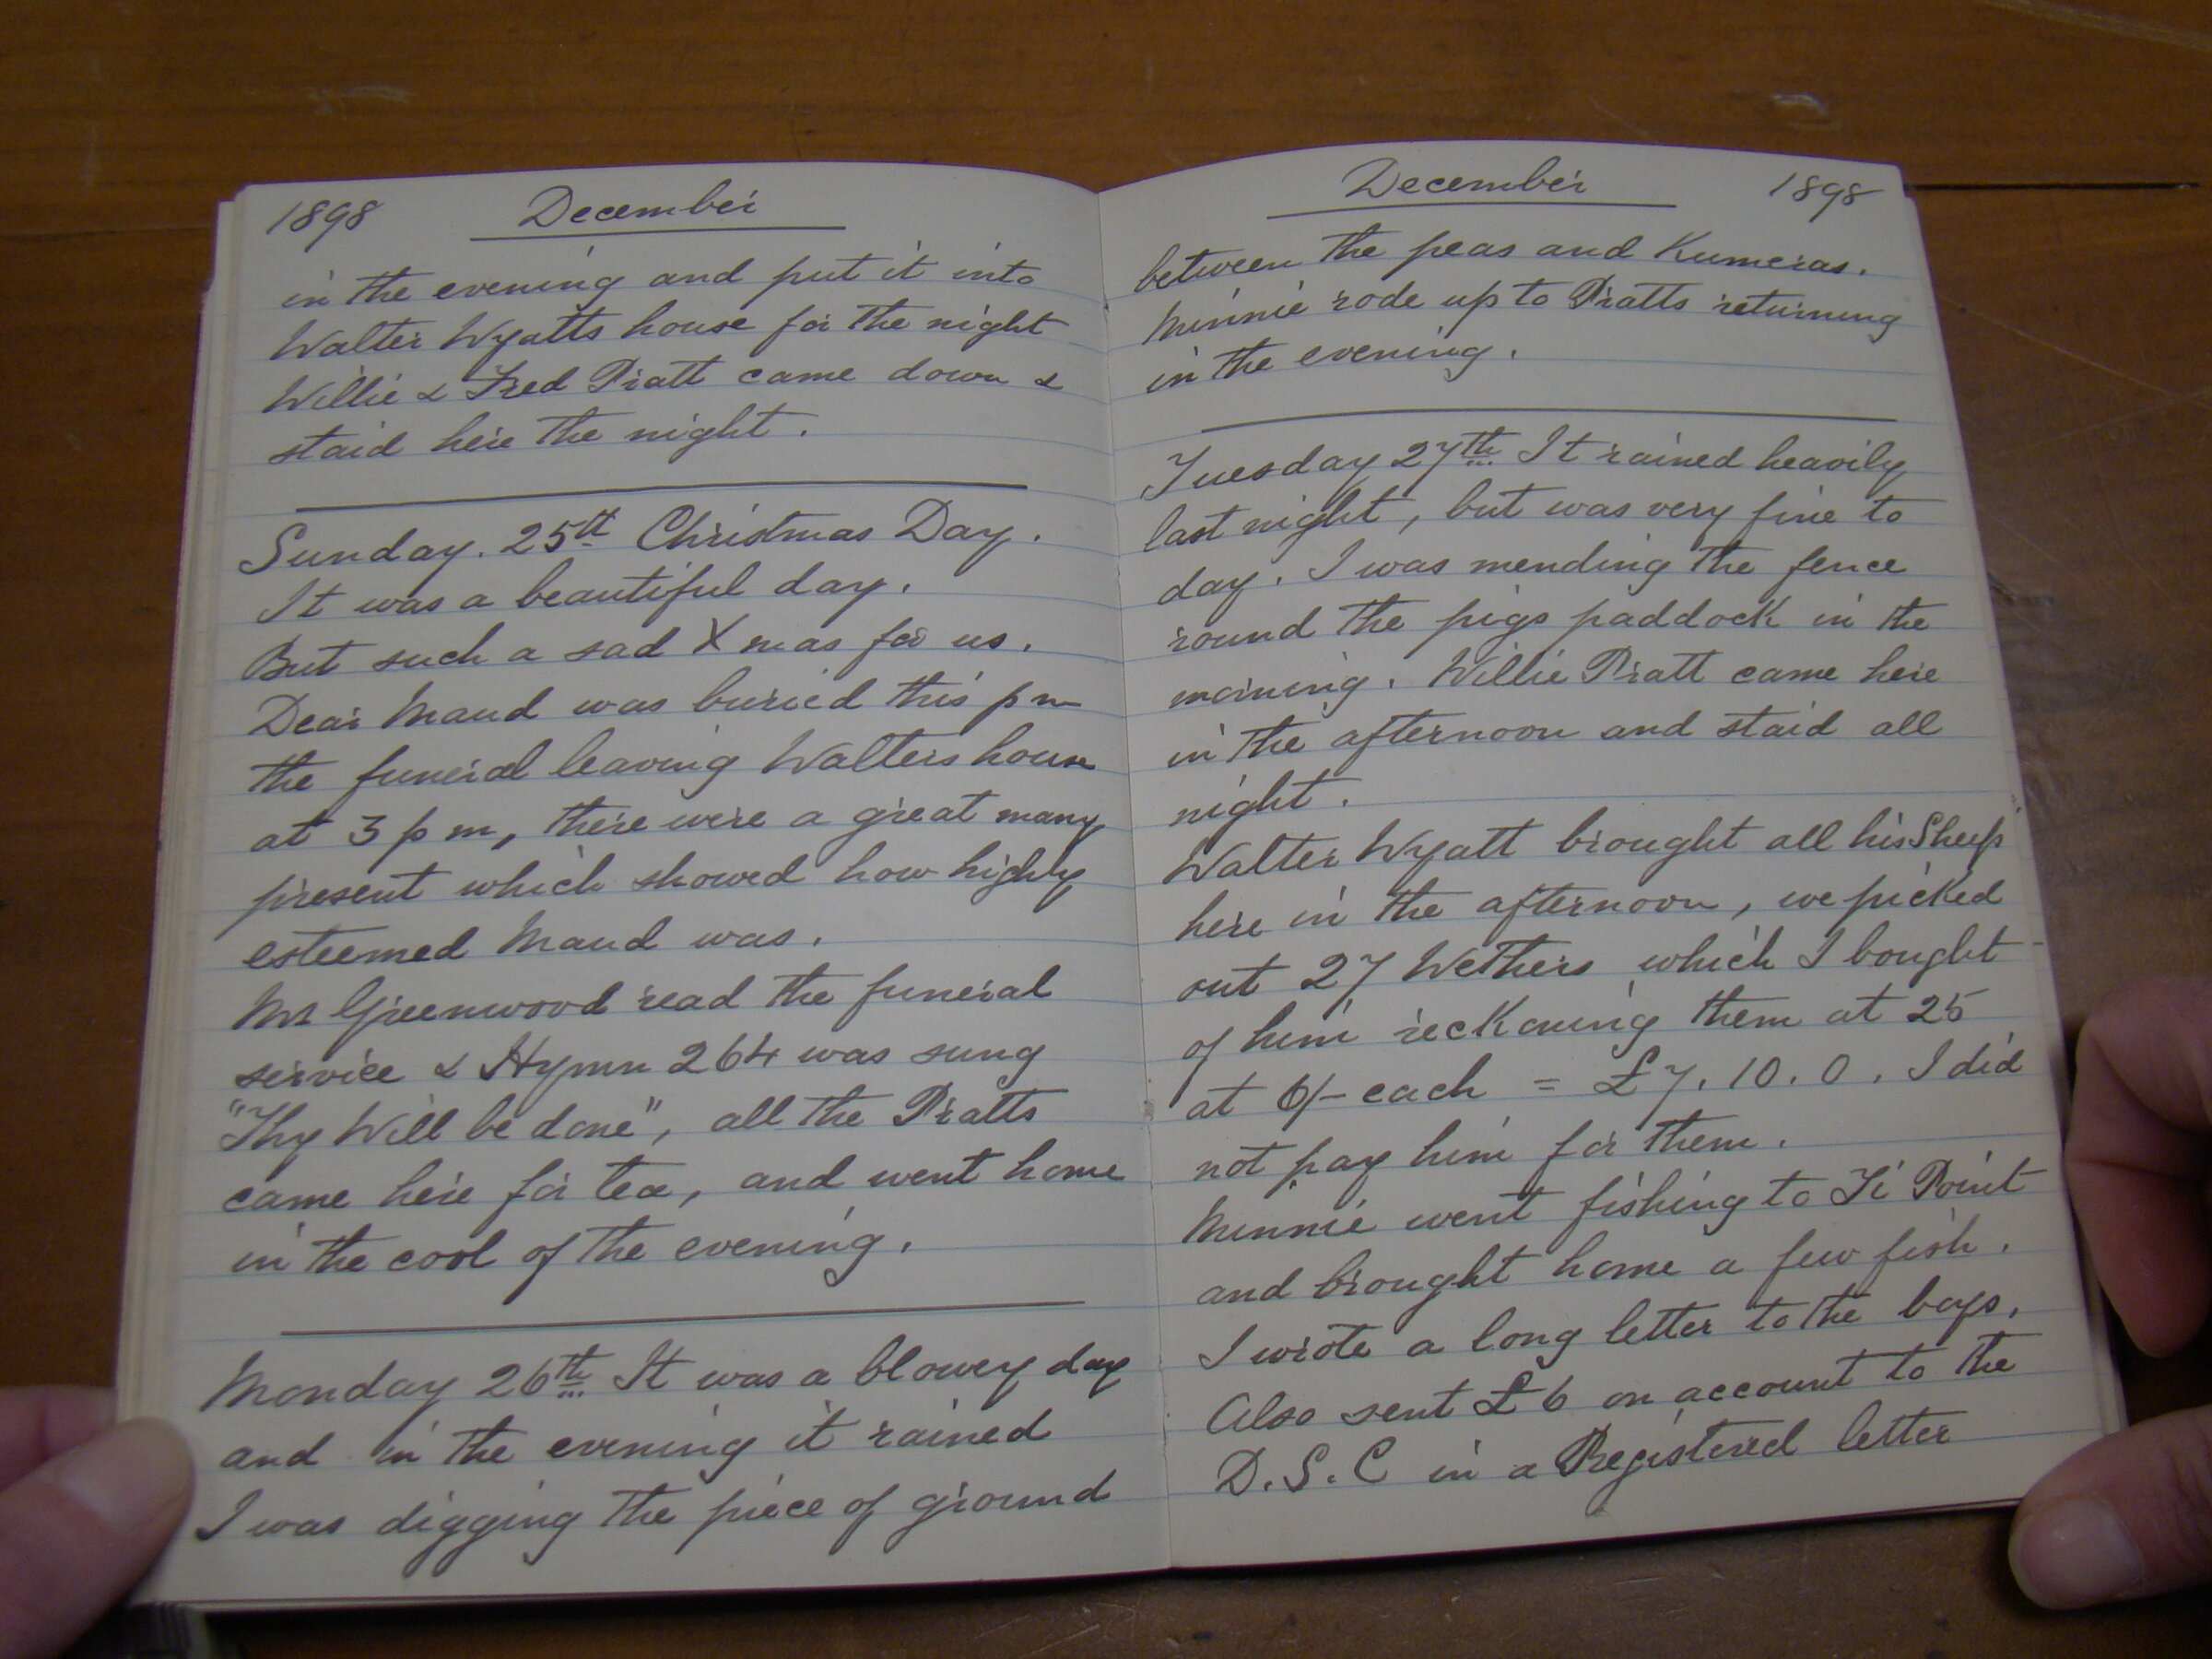 1898 December
in the evening and put it into
Walter Wyatts house for the night
Willie & Fred Pratt came down &
staid here the night.
Sunday. 25th Christmas Day.
It was a beautiful day.
But such a sad Xmas for us.
Dear Maud was buried this pm
the funeral leaving Walters house
at 3 pm, there were a great many
present which showed how highly
esteemed Maud was.
Mr Greenwood read the funeral
service & Hymn 264 was sung
"Thy Will be done", all the Pratts
came here for tea, and went home
in the cool of the evening.
Monday 26th It was a blowey day
and in the evening it rained
I was digging the piece of ground
December 1898
between the peas and Kumeras.
Minnie rode up to Pratts returning
in the evening.
Tuesday 27th It rained heavily
last night, but was very fine to
day. I was mending the fence
round the pigs paddock in the
morning. Willie Pratt came here
in the afternoon and staid all
night.
Walter Wyatt brought all his Sheep
here in the afternoon, we picked
out 27 Wethers which I bought
of him reckoning them at 25
at 6/- each = £7.10.0. I did
not pay him for them.
Minnie went fishing to Ti Point
and brought home a few fish.
I wrote a long letter to the boys,
Also sent £6 on account to the
D.S.C in a Registered letter